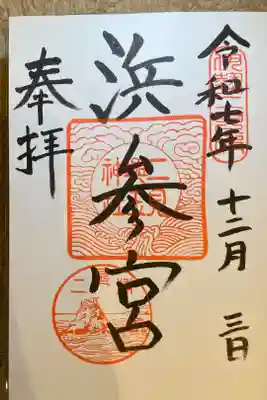 令和七年 十二月 三日
浜参宮
奉拝